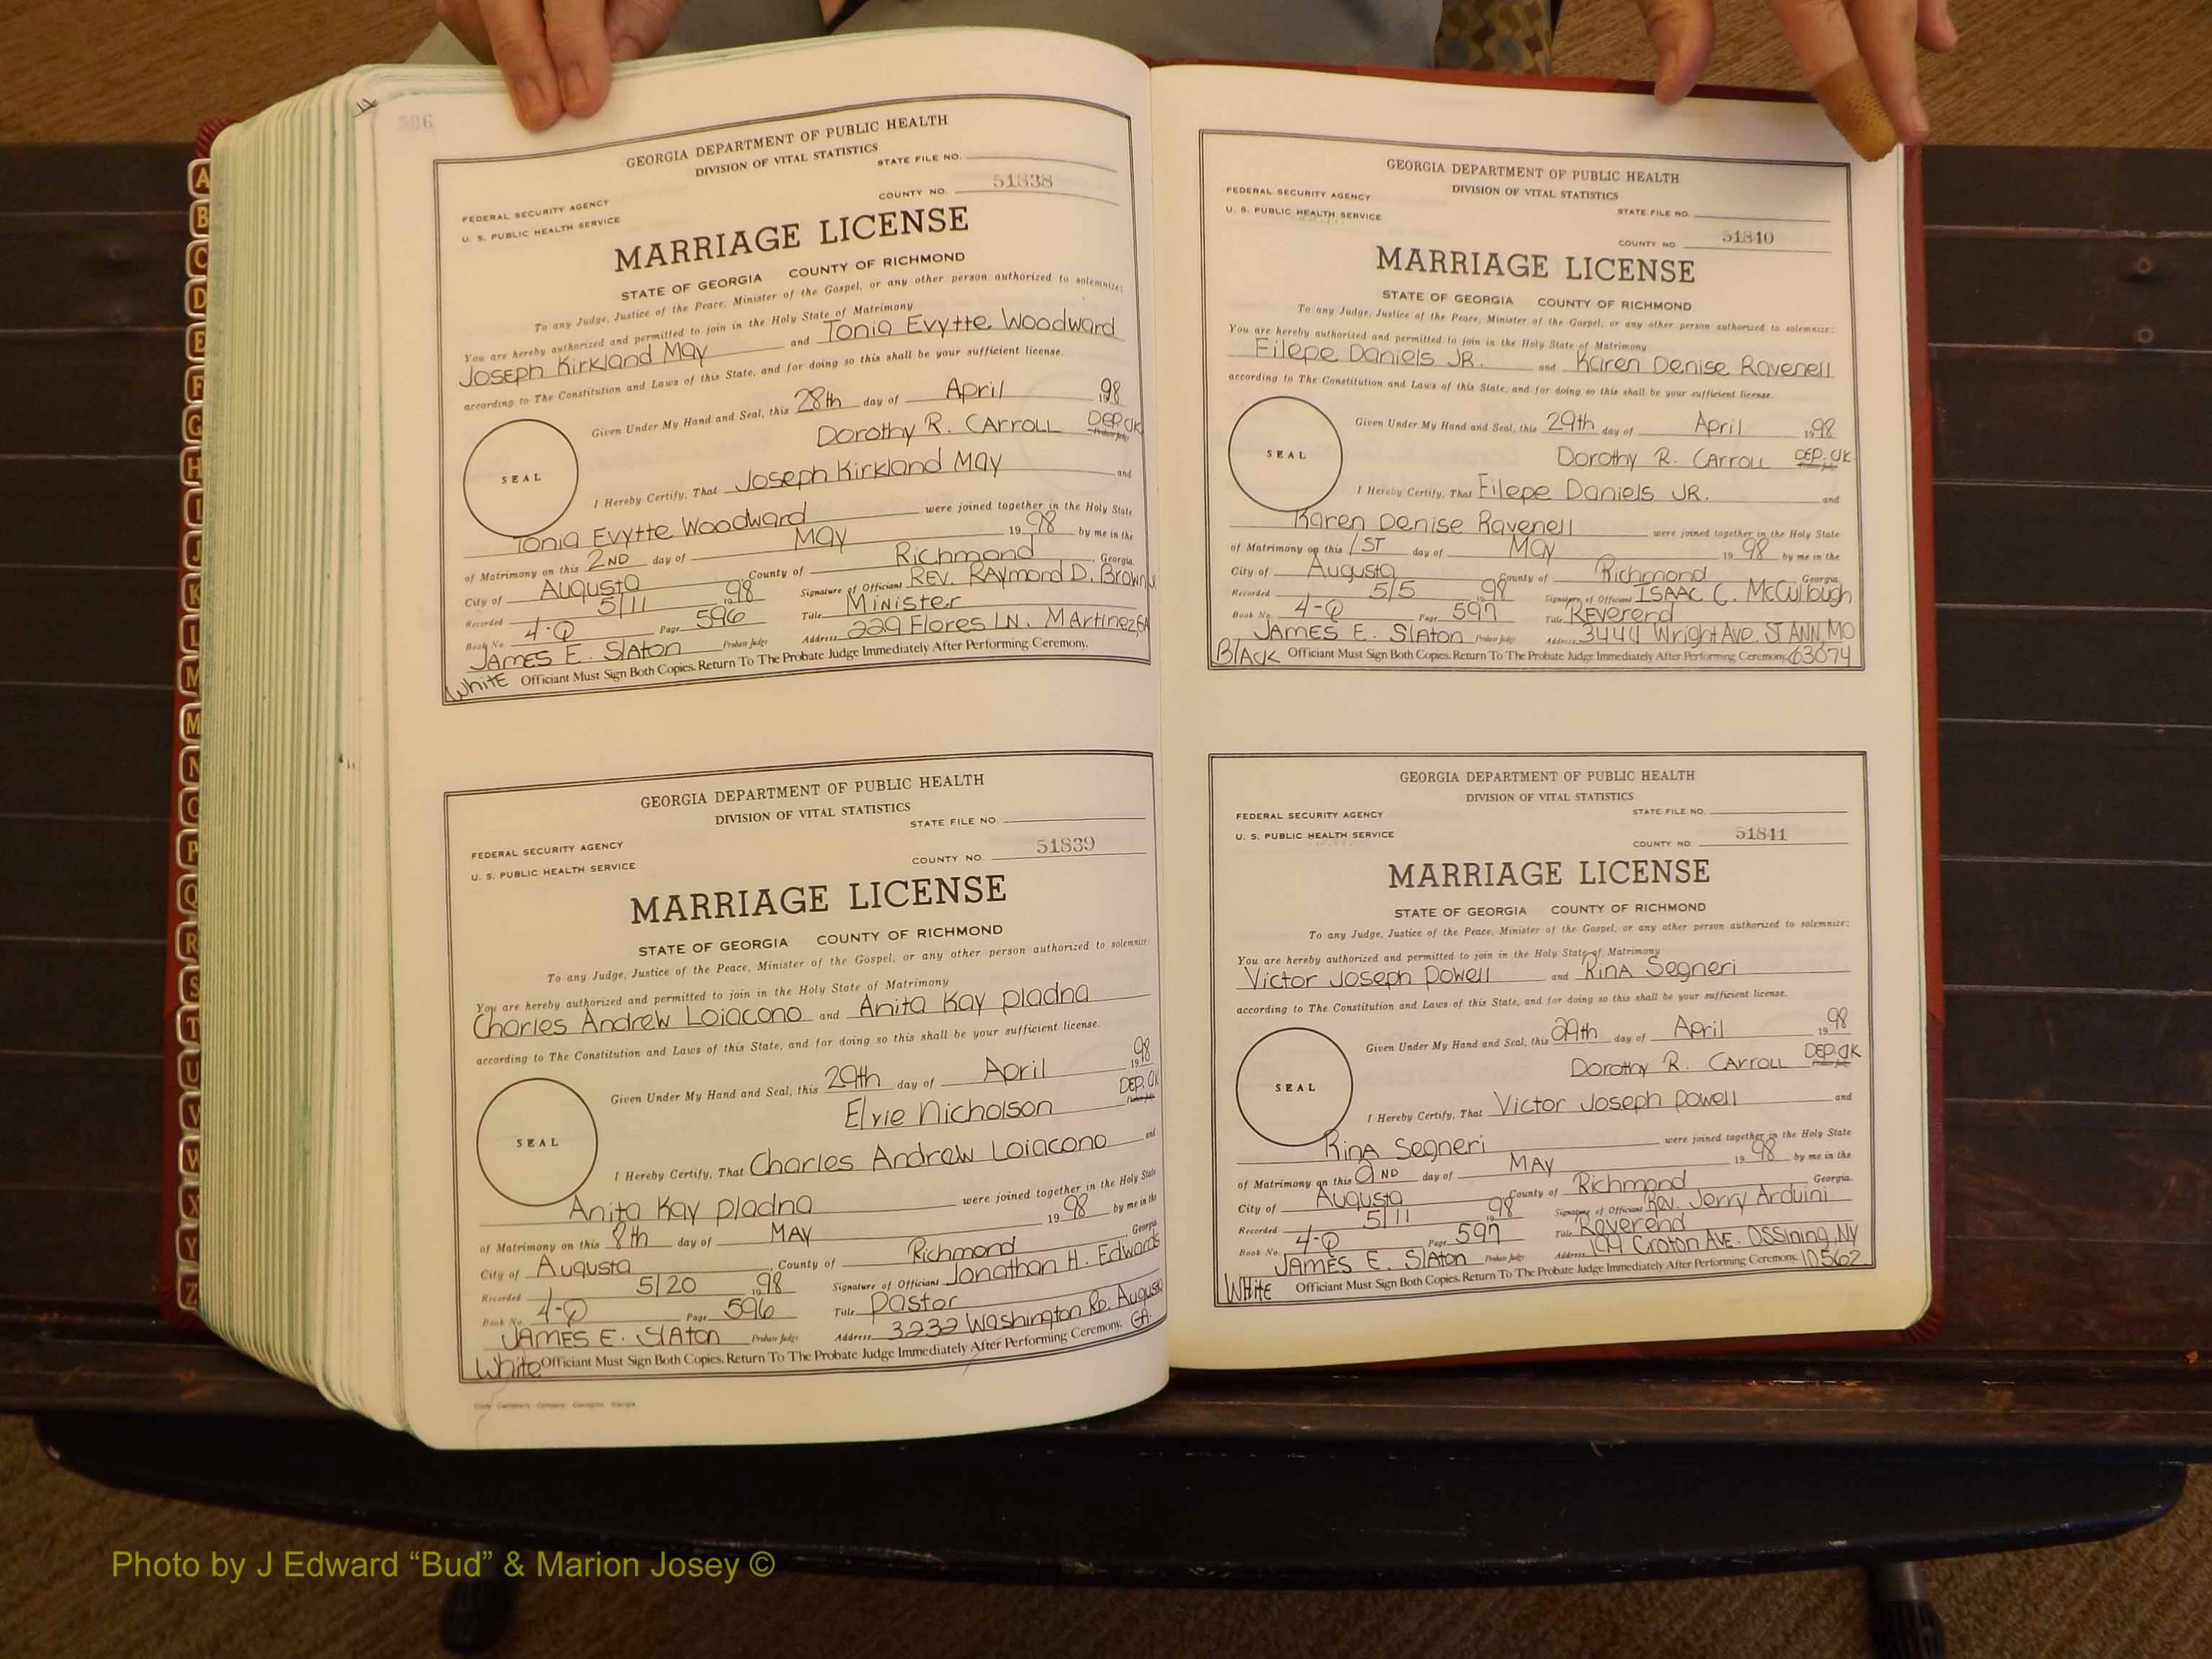 596
GEORGIA DEPARTMENT OF PUBLIC HEALTH
DIVISION OF VITAL STATISTICS
STATE FILE NO.
COUNTY NO. 51838
FEDERAL SECURITY AGENCY
U. S. PUBLIC HEALTH SERVICE
MARRIAGE LICENSE
STATE OF GEORGIA COUNTY OF RICHMOND
To any Judge, Justice of the Peace, Minister of the Gospel, or any other person authorized to solemnize:
You are hereby authorized and permitted to join in the Holy State of Matrimony
Joseph Kirkland May and Tonia Evytte Woodward
according to The Constitution and Laws of this State, and for doing so this shall be your sufficient license.
Given Under My Hand and Seal, this 28th day of April 1998
Dorothy R. Carroll Dep. Clk
SEAL
I Hereby Certify, That Joseph Kirkland May and
Tonia Evytte Woodward were joined together in the Holy State
of Matrimony on this 2ND day of May 1998 by me in the
City of Augusta County of Richmond, Georgia
Recorded 5/11 1998 Signature of Officiant Rev. Raymond D. Brown
Book No. 4-Q Page 596 Title Minister
James E. Slaton Probate Judge Address 229 Flores LN. Martinez GA
White Officiant Must Sign Both Copies. Return To The Probate Judge Immediately After Performing Ceremony.
GEORGIA DEPARTMENT OF PUBLIC HEALTH
DIVISION OF VITAL STATISTICS
STATE FILE NO.
COUNTY NO. 51839
FEDERAL SECURITY AGENCY
U. S. PUBLIC HEALTH SERVICE
MARRIAGE LICENSE
STATE OF GEORGIA COUNTY OF RICHMOND
To any Judge, Justice of the Peace, Minister of the Gospel, or any other person authorized to solemnize:
You are hereby authorized and permitted to join in the Holy State of Matrimony
Charles Andrew Loiacono and Anita Kay Pladna
according to The Constitution and Laws of this State, and for doing so this shall be your sufficient license.
Given Under My Hand and Seal, this 29th day of April 1998
Elvie Nicholson Dep. Clk
SEAL
I Hereby Certify, That Charles Andrew Loiacono and
Anita Kay Pladna were joined together in the Holy State
of Matrimony on this 8th day of May 1998 by me in the
City of Augusta, County of Richmond Georgia
Recorded 5/20 1998 Signature of Officiant Jonathan H. Edwards
Book No. 4-Q Page 596 Title Pastor
James E. Slaton Probate Judge Address 3232 Washington Rd. Augusta GA.
White Officiant Must Sign Both Copies. Return To The Probate Judge Immediately After Performing Ceremony.
GEORGIA DEPARTMENT OF PUBLIC HEALTH
DIVISION OF VITAL STATISTICS
FEDERAL SECURITY AGENCY
U. S. PUBLIC HEALTH SERVICE
STATE FILE NO.
COUNTY NO. 51840
MARRIAGE LICENSE
STATE OF GEORGIA COUNTY OF RICHMOND
To any Judge, Justice of the Peace, Minister of the Gospel, or any other person authorized to solemnize:
You are hereby authorized and permitted to join in the Holy State of Matrimony
Filepe Daniels JR. and Karen Denise Ravenell
according to The Constitution and Laws of this State, and for doing so this shall be your sufficient license.
Given Under My Hand and Seal, this 29th day of April 1998
Dorothy R. Carroll Dep. Clk
SEAL
I Hereby Certify, That Filepe Daniels JR. and
Karen Denise Ravenell were joined together in the Holy State
of Matrimony on this 1ST day of May 1998 by me in the
City of Augusta County of Richmond Georgia
Recorded 5/5 1998 Signature of Officiant Isaac C. McCullough
Book No. 4-Q Page 597 Title Reverend
James E. Slaton Probate Judge Address 3444 Wright Ave. ST ANN, MO
Black Officiant Must Sign Both Copies. Return To The Probate Judge Immediately After Performing Ceremony. 63074
GEORGIA DEPARTMENT OF PUBLIC HEALTH
DIVISION OF VITAL STATISTICS
FEDERAL SECURITY AGENCY
U. S. PUBLIC HEALTH SERVICE
STATE FILE NO.
COUNTY NO. 51841
MARRIAGE LICENSE
STATE OF GEORGIA COUNTY OF RICHMOND
To any Judge, Justice of the Peace, Minister of the Gospel, or any other person authorized to solemnize:
You are hereby authorized and permitted to join in the Holy State of Matrimony
Victor Joseph Powell and Rina Segneri
according to The Constitution and Laws of this State, and for doing so this shall be your sufficient license.
Given Under My Hand and Seal, this 29th day of April 1998
Dorothy R. Carroll Dep. Clk
SEAL
I Hereby Certify, That Victor Joseph Powell and
Rina Segneri were joined together in the Holy State
of Matrimony on this 2ND day of May 1998 by me in the
City of Augusta County of Richmond Georgia.
Recorded 5/11 1998 Signature of Officiant Rev. Jerry Arduini
Book No. 4-Q Page 597 Title Reverend
James E. Slaton Probate Judge Address Croton Ave. Ossining, NY
White Officiant Must Sign Both Copies. Return To The Probate Judge Immediately After Performing Ceremony. 10562
A
B
C
D
E
F
G
H
I
J
K
L
M
Mc
N
O
P
Q
R
S
T
U
V
W
X
Y
Z
Photo by J Edward “Bud” & Marion Josey ©